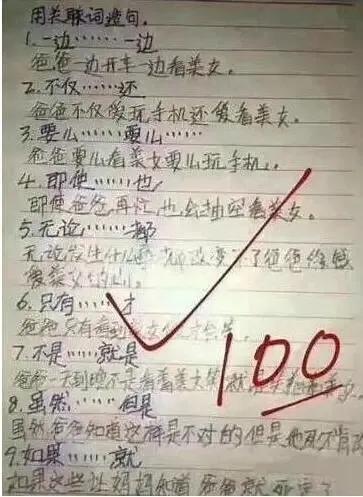 用关联词造句。
1.一边……一边
爸爸一边开车一边看美女。
2.不仅……还
爸爸不仅爱玩手机还爱看美女。
3.要么……要么……
爸爸要么看美女要么玩手机。
4.即使……也,
即使爸爸再忙,也会抽空看美女。
5.无论……都
无论发生什么都改变不了爸爸
爱美女的心。
6.只有……才
爸爸只有看到美女才会笑。
7.不是……就是
爸爸一天到晚不是看着美女笑就是
8.虽然……但是
虽然爸爸知道这样是不对的但是他死不悔改
9.如果……就
如果这些让妈妈知道爸爸就死定了
100